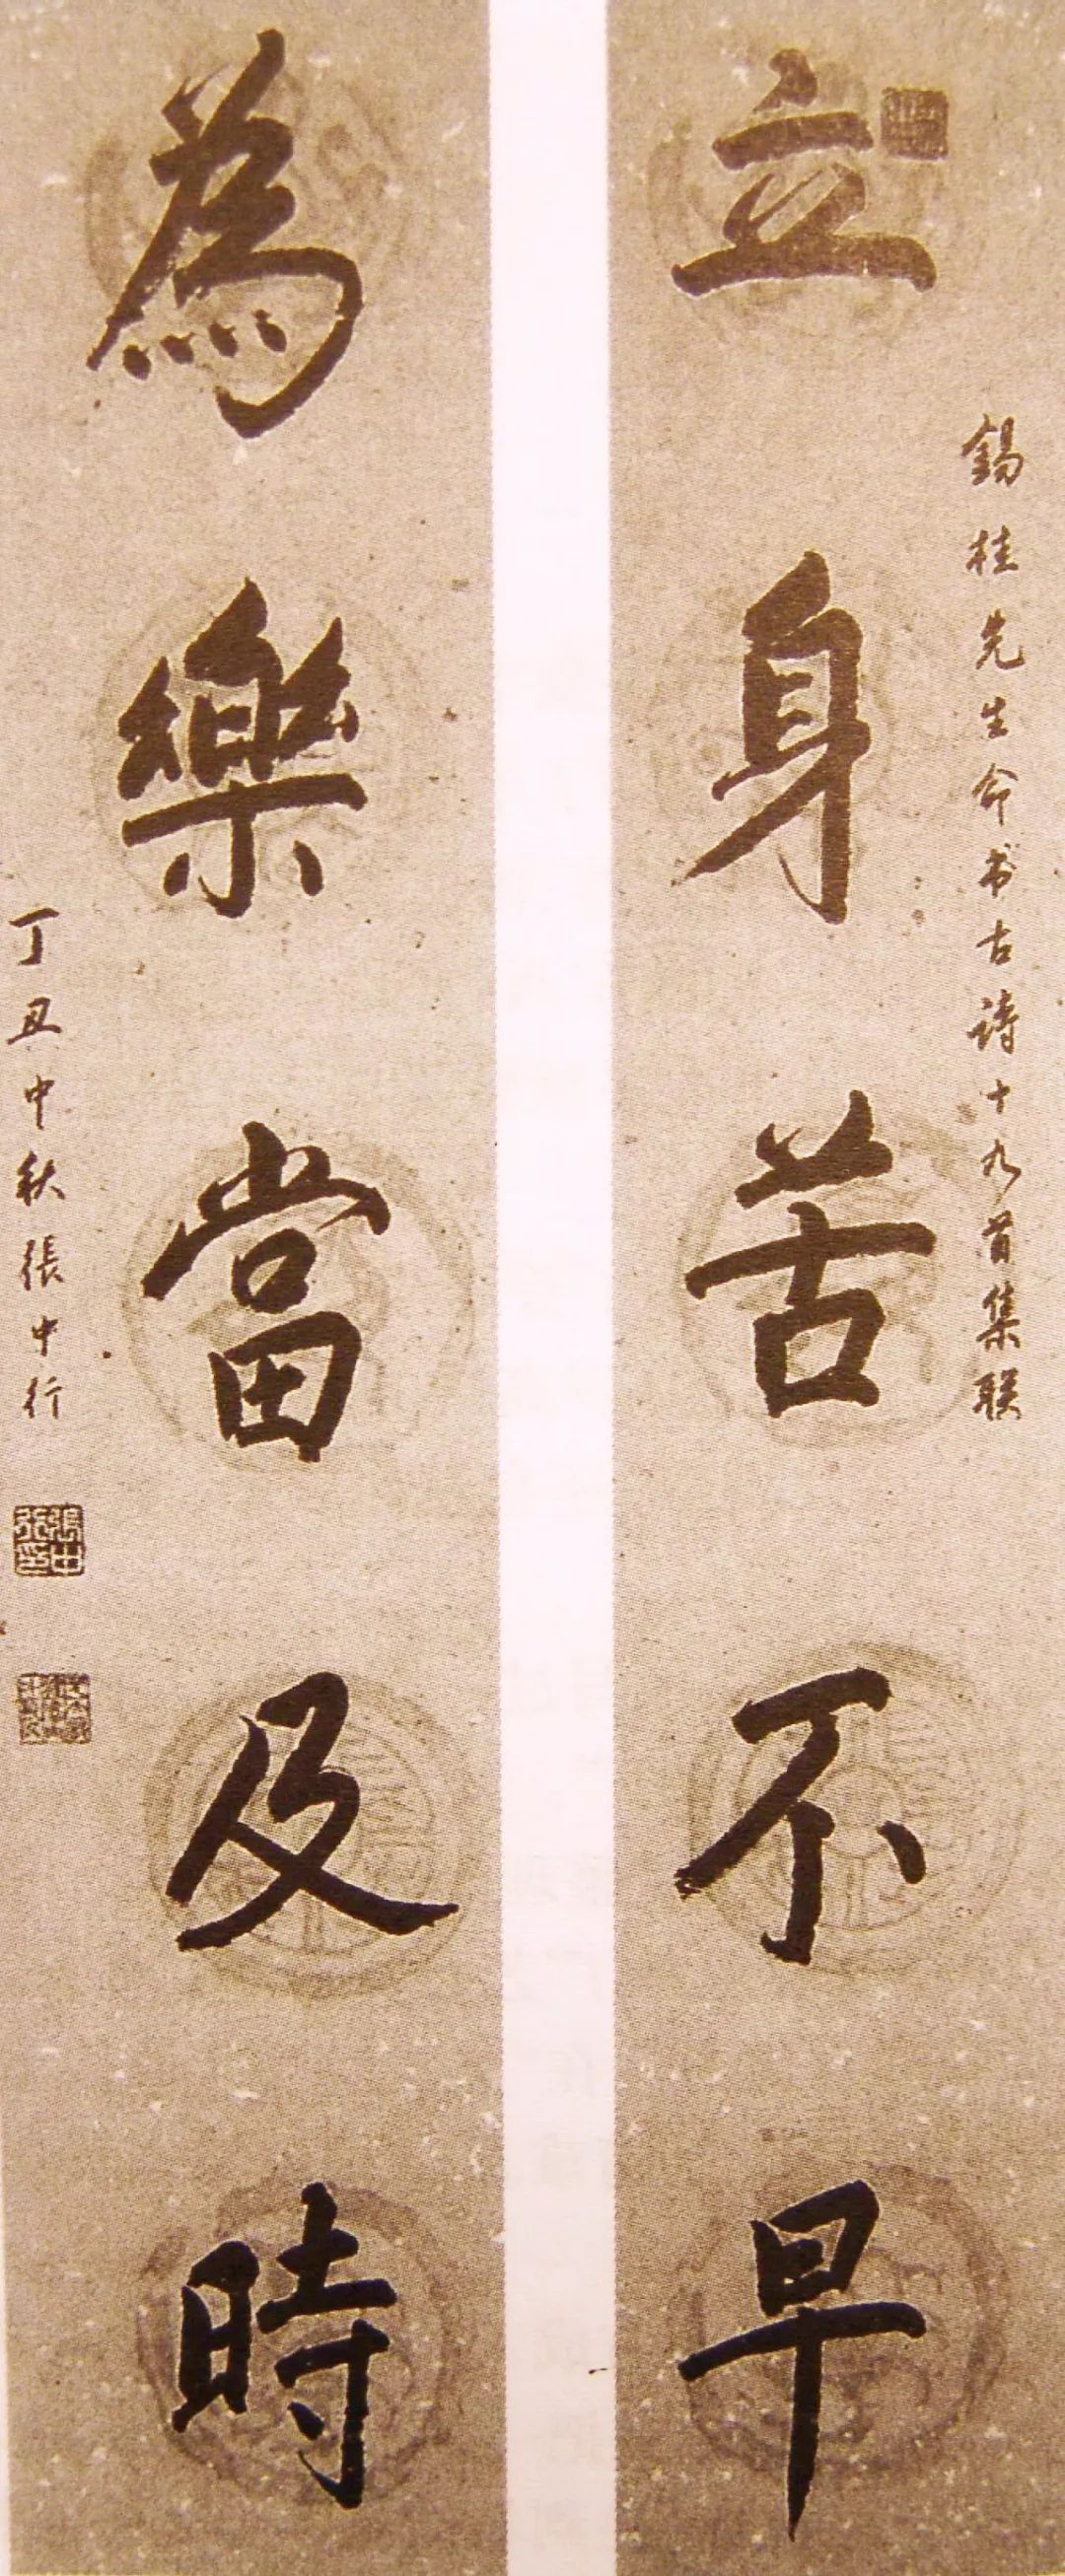 錫桂先生命书古诗十九首集联
立身苦不早
為樂當及時
丁丑中秋張中行